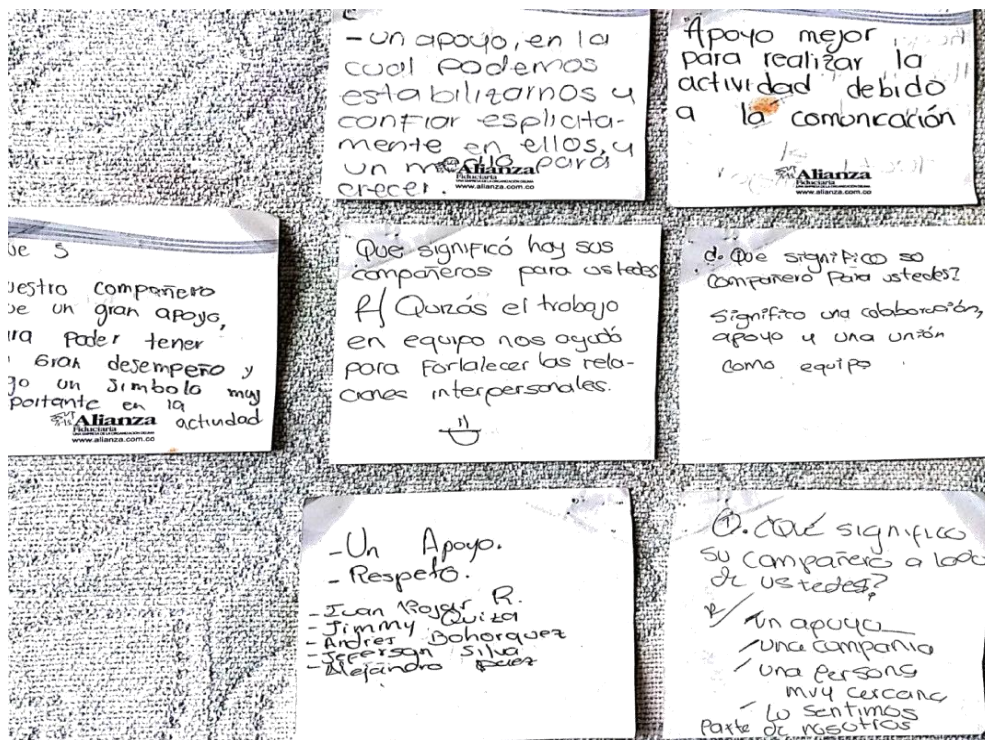 - un apoyo, en la
cual podemos
estabilizarnos y
confiar esplicita-
mente en ellos, y
un medio para
crecer.
Alianza
Fiduciaria
www.alianza.com.co
Apoyo mejor
para realizar la
actividad debido
a la comunicación
Alianza
Fiduciaria
www.alianza.com.co
ue s
uestro compañero
ue un gran apoyo,
ra poder tener
Gran desempeño y
go un simbolo muy
portante en la
actividad
Alianza
Fiduciaria
www.alianza.com.co
Que significó hoy sus
compañeros para ustedes
R/ Quizás el trabajo
en equipo nos ayudó
para fortalecer las rela-
ciones interpersonales.
d. Que significo so
compañero Para ustedes?
Significo una colaboración,
apoyo y una unión
como equipo
- Un Apoyo.
- Respeto.
- Juan Rojas R.
- Jimmy Quiza
- Andres Bohorquez
- Jeferson Silva
- Alejandro Paez
①. ¿Qué significo
su compañero a lado
de ustedes?
R/ un apoyo
/ una compañia
/ una persona
muy cercana
/ Lo sentimos
Parte de nosotros